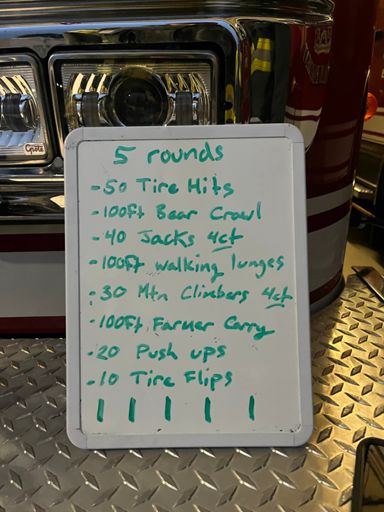 5 rounds
-50 Tire Hits
-100ft Bear Crawl
-40 Jacks 4ct
-100ft walking lunges
-30 Mtn Climbers 4ct
-100ft Farmer Carry
-20 Push ups
-10 Tire Flips
| | | | |